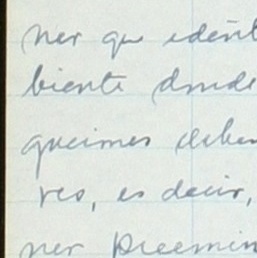 ner que ident
biente donde
queimes deben
res, es decir,
ner preemin